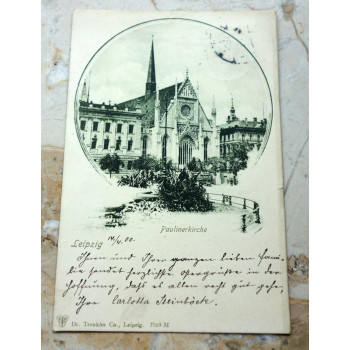 Paulinerkirche
Leipzig 14/4. 00.
Ihnen und Ihrer ganzen lieben Fami-
lie sendet herzlichste Ostergrüsse in der
Hoffnung, dass es allen recht gut gehe,
Ihre Carlotta Steinböck.
Dr. Trenkler Co., Leipzig. M